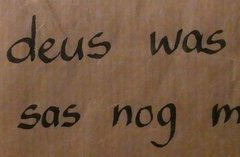 deus was
sas nog m